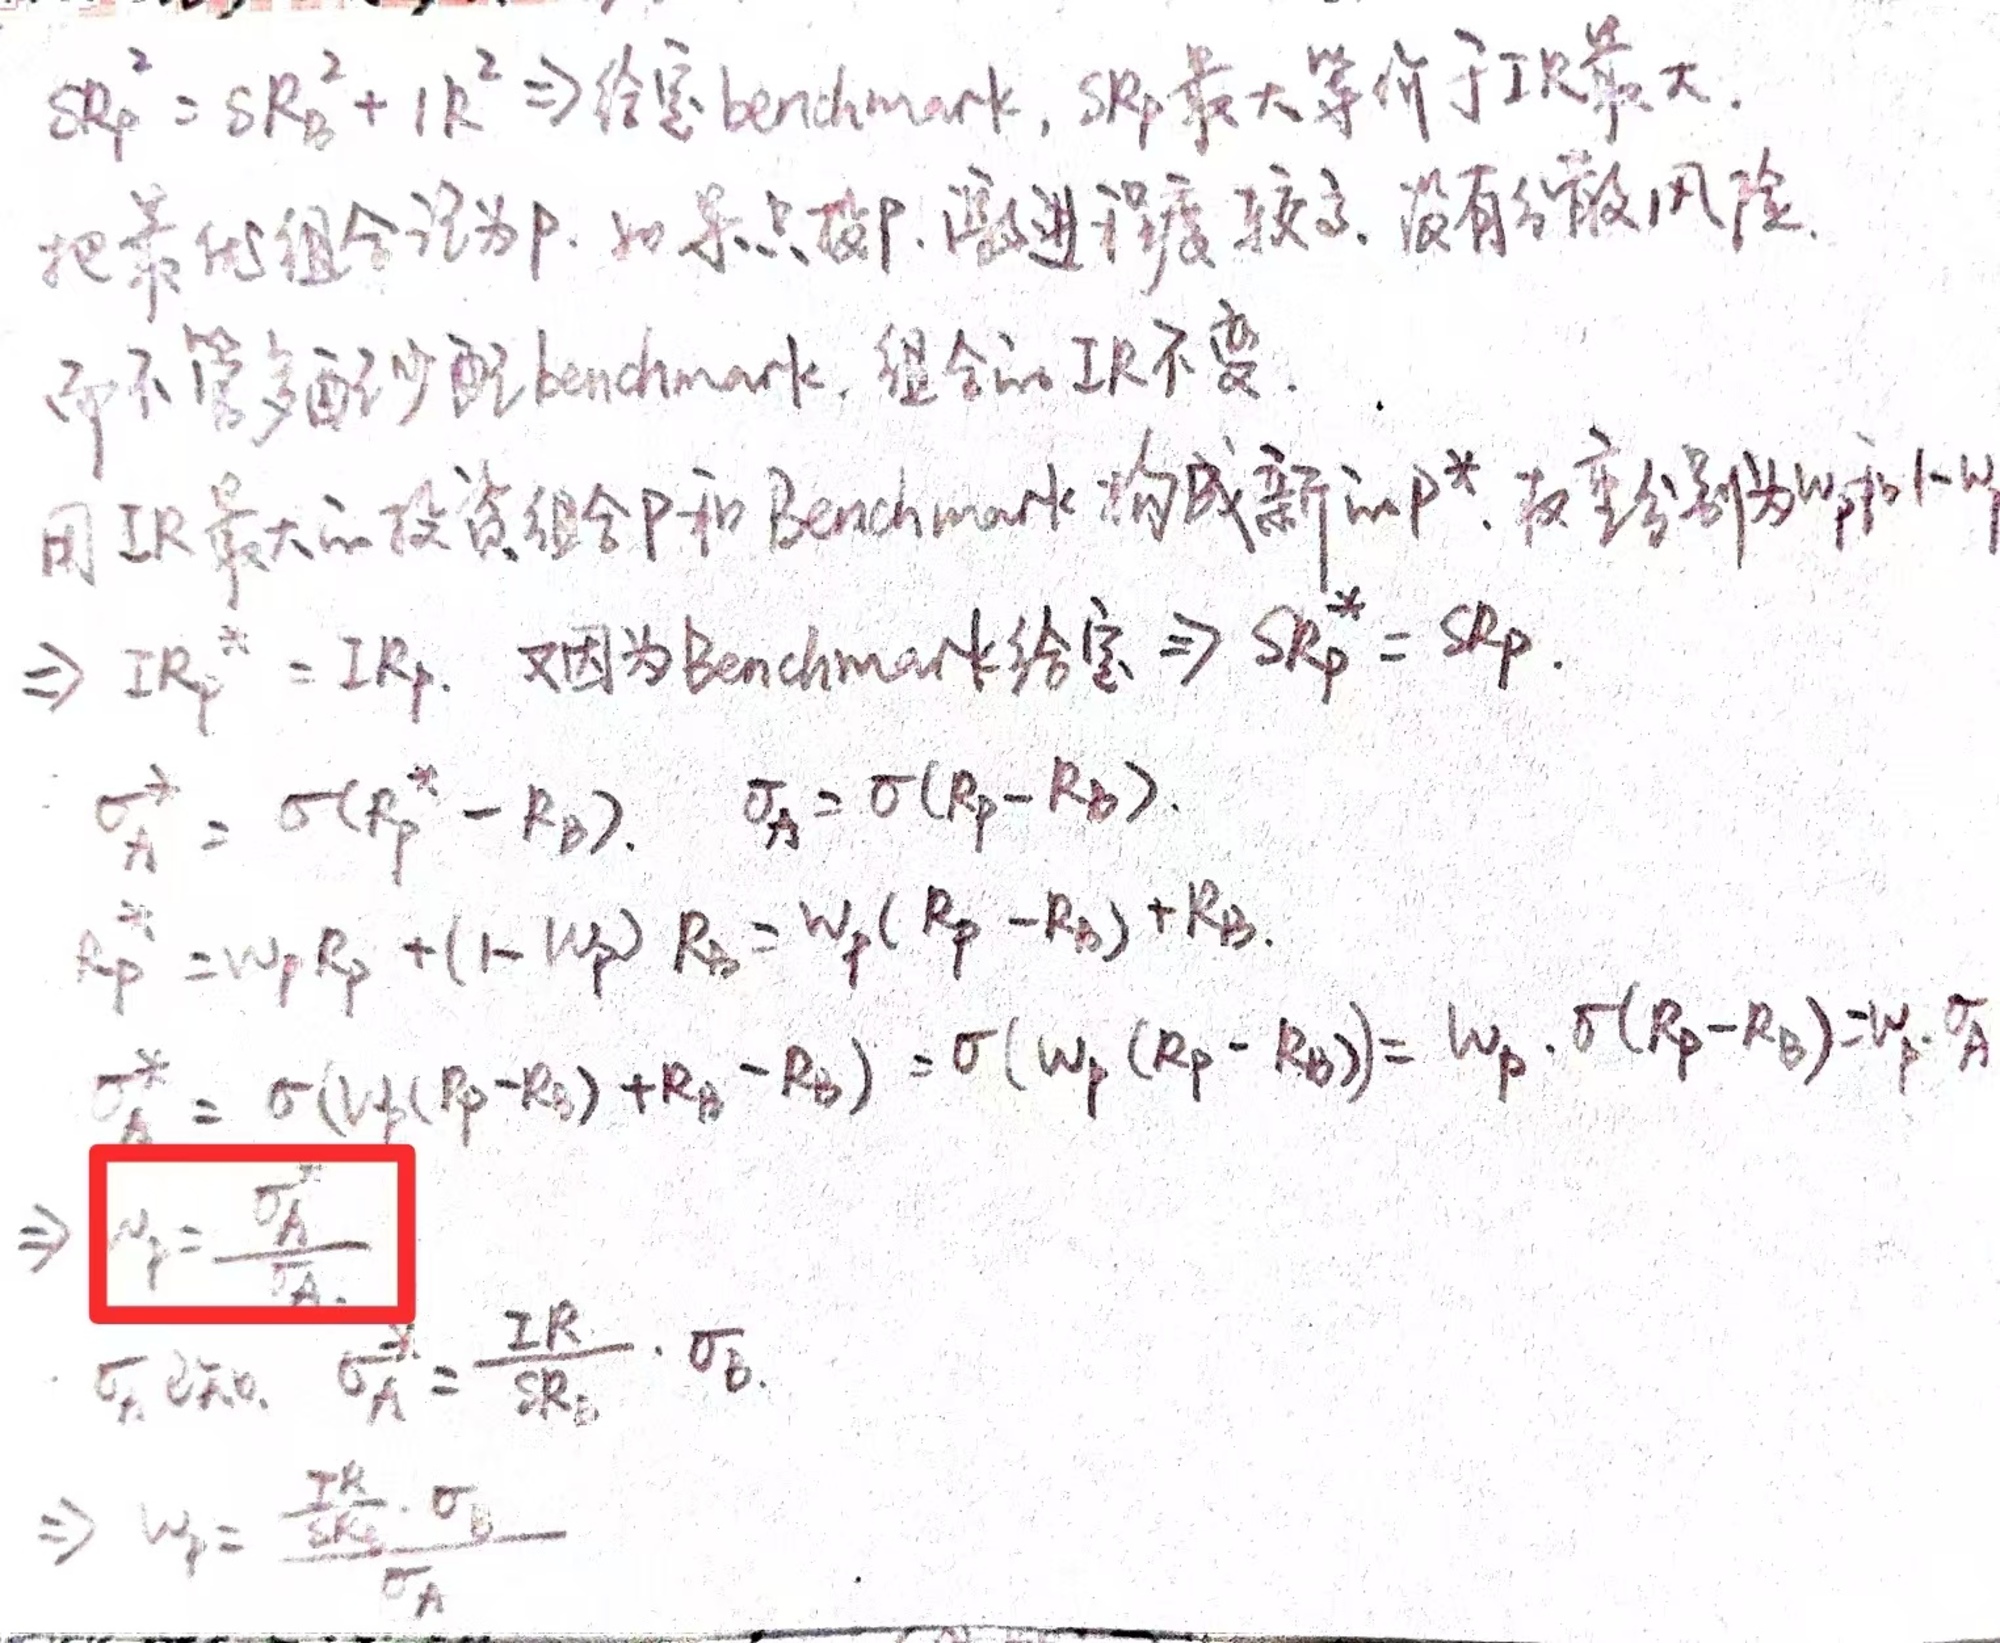 SRp² = SR_B² + IR² ⇒ 给定benchmark, SRp最大等价于IR最大.
把最优组合记为P. 如果只投P. 激进程度较高. 没有分散风险.
而不管多配少配benchmark, 组合的IR不变.
用IR最大的投资组合P和Benchmark构成新的P*. 权重分别为Wp和1-Wp
⇒ IRp* = IRp. 又因为Benchmark给定 ⇒ SRp* = SRp.
σ_A* = σ(Rp* - R_B). σ_A = σ(Rp - R_B).
Rp* = WpRp + (1-Wp) R_B = Wp(Rp - R_B) + R_B.
σ_A* = σ(Wp(Rp-R_B) + R_B - R_B) = σ(Wp(Rp - R_B)) = Wp · σ(Rp - R_B) = Wp · σ_A
⇒ Wp = σ_A* / σ_A.
σ_A已知. σ_A* = IR / SR_B · σ_B.
⇒ Wp = IR / SR_B · σ_B / σ_A